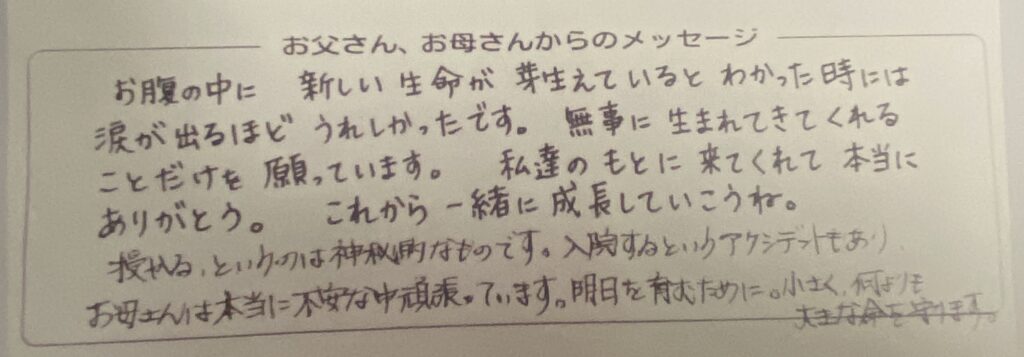 お父さん、お母さんからのメッセージ
お腹の中に 新しい生命が 芽生えていると わかった時には
涙が出るほど うれしかったです。 無事に生まれてきてくれる
ことだけを 願っています。 私達の もとに 来てくれて 本当に
ありがとう。 これから 一緒に 成長していこうね。
授かる、というのは神秘的なものです。入院するというアクシデントもあり、
お母さんは本当に不安な中頑張っています。明日を育むために。小さく、何よりも
大きな命を守ります。